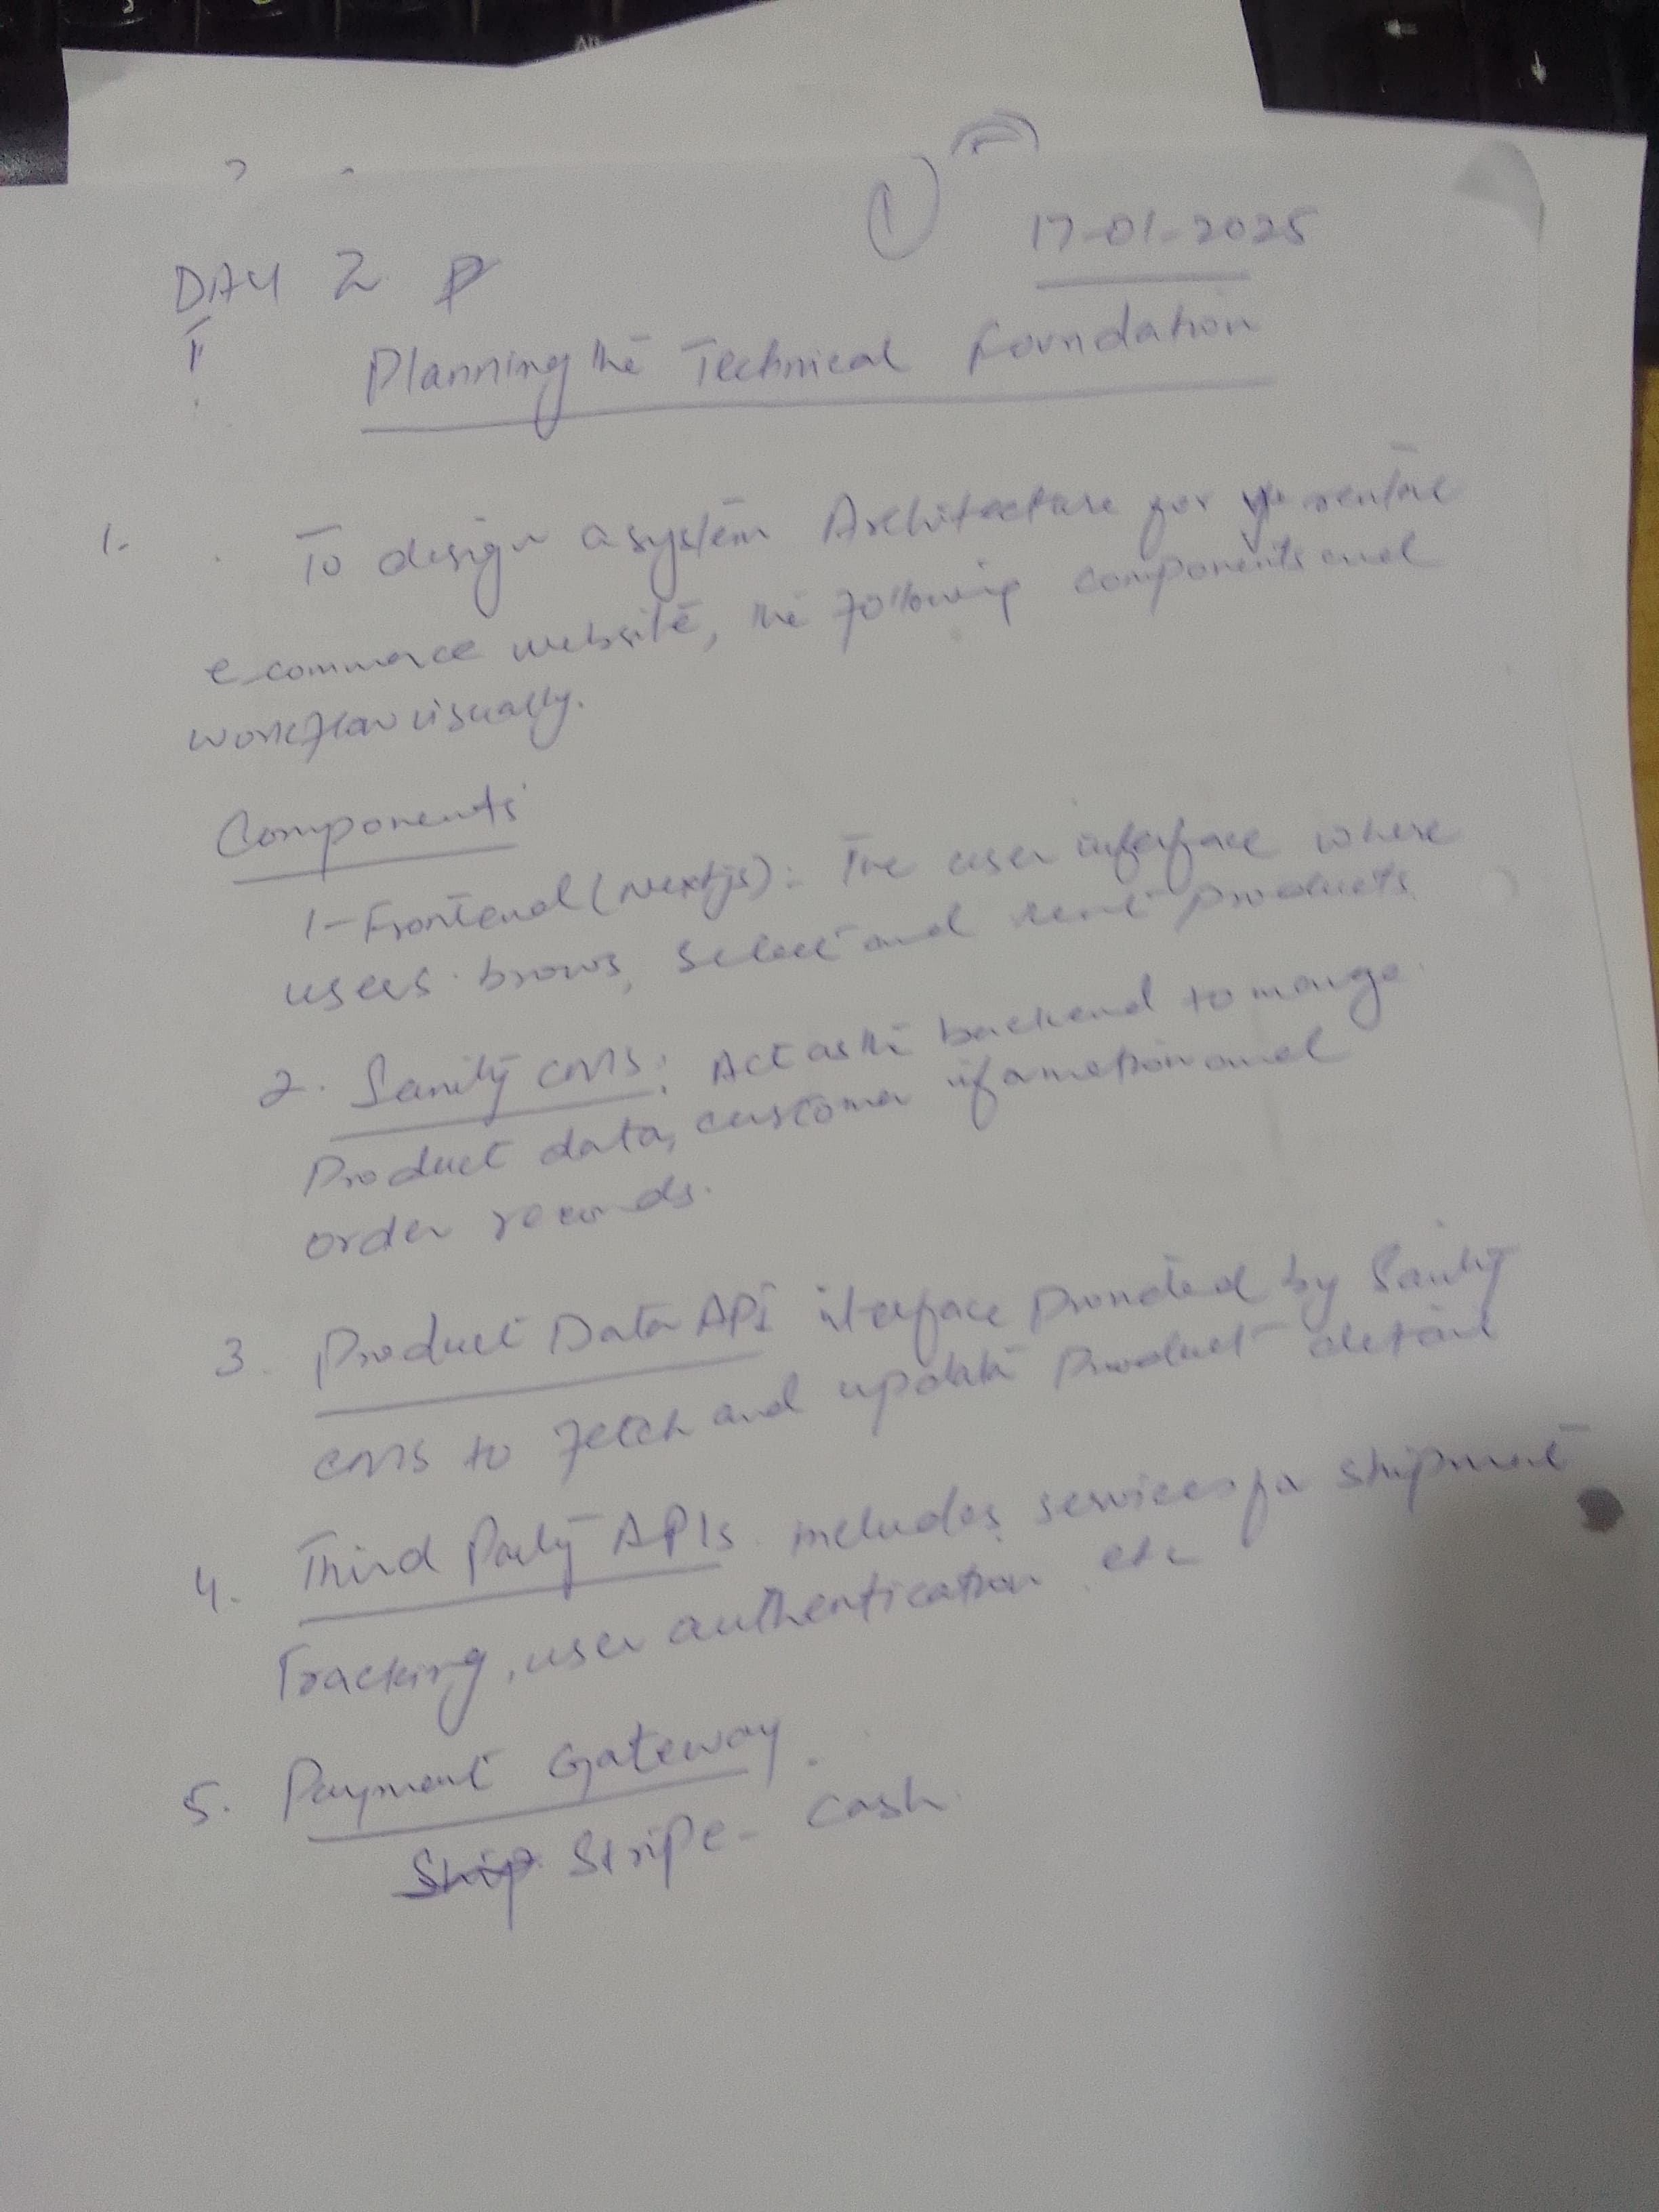 ①
17-01-2025
DAY 2
Planning the Technical Foundation
1- To design a system Architecture for rental
e commerce website, the following components and
workflow visually.
Components
1- Frontend (Nextjs): The user interface where
users brows, select and rent products
2. Sanity CMS: Act as the backend to mange
Product data, customer ifamation and
order records.
3. Product Data API interface provided by Sanity
CMS to Fetch and update Product detail
4. Third Party APIs includes services for shipment
Tracking, user authentication etc
5. Payment Gateway.
Ship Stripe - cash.